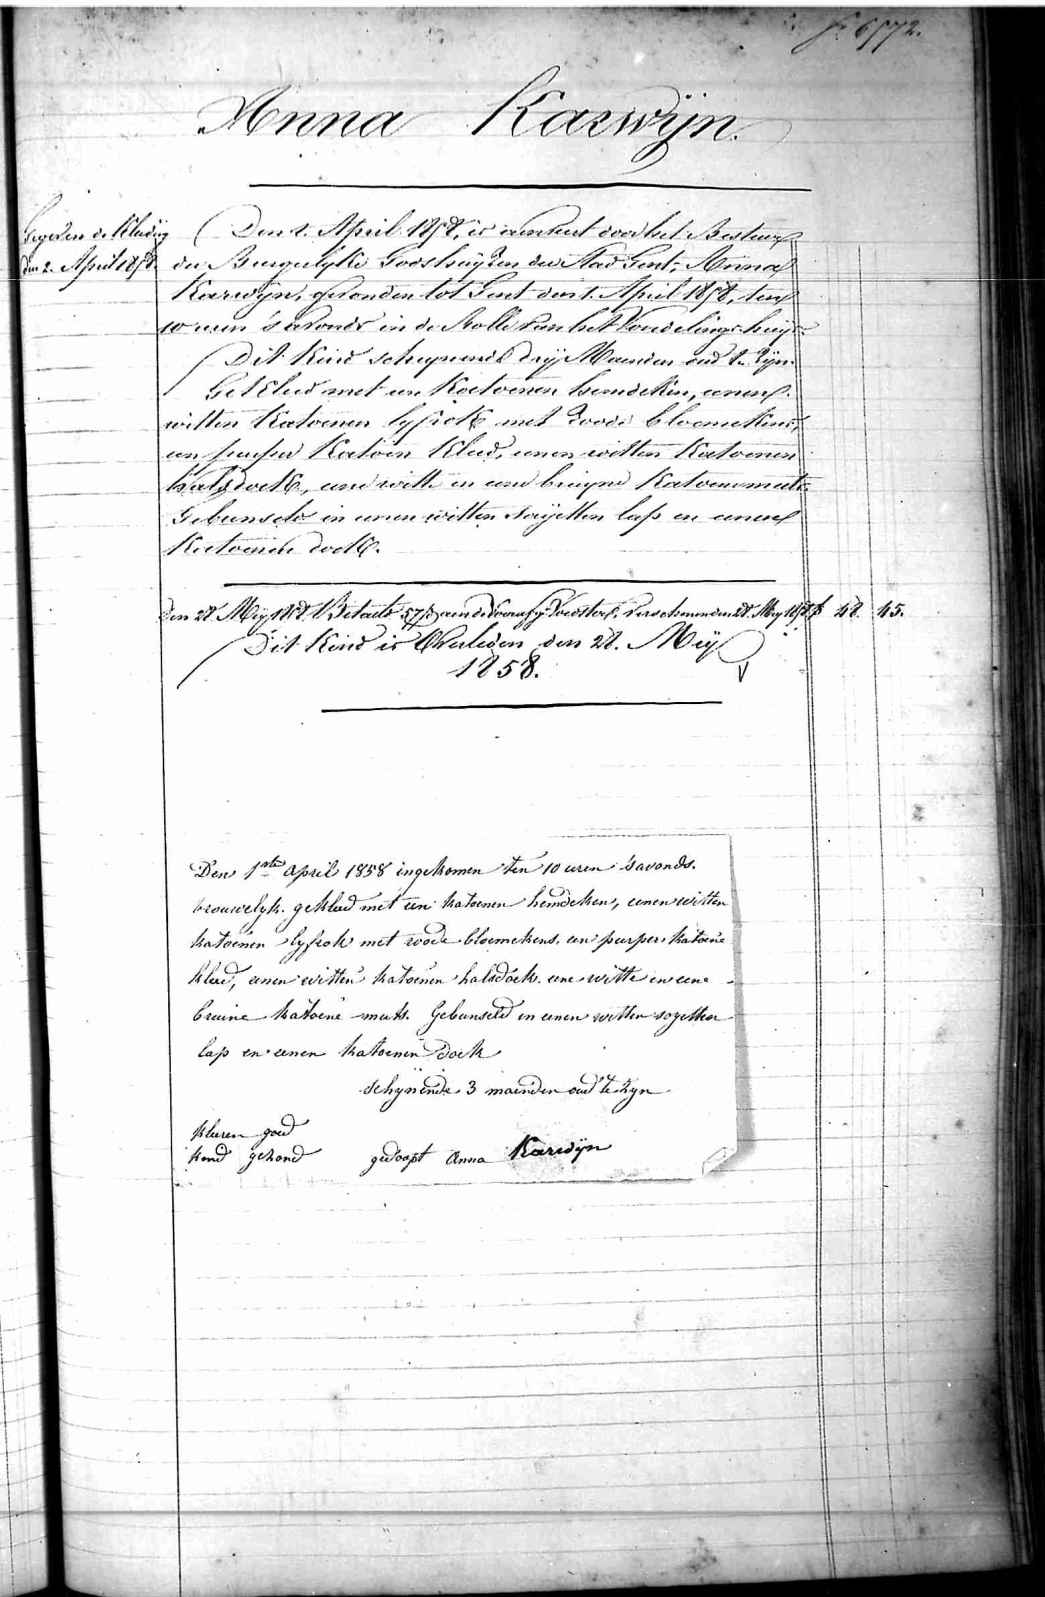 6572.
Anna Karwijn.
Gegeven de Kleding
den 2. April 1858.
Den 1. April 1858, is aenveert door het Bestuer
der Burgelyke Godshuyzen der Stad Gent, Anna
Karwijn, gevonden tot Gent den 1. April 1858, ten
10 uren 's avonds in de Rolle van het Vondelingshuys.
Dit Kind schynende dry Maenden oud te zyn.
Gekleed met een Katoenen hemdeken, eenen
witten Katoenen lyfrok met roode bloemekens,
een purper Katoen Kleed, eenen witten Katoenen
halsdoek, eene witte en eene bruyne Katoene muts.
Gebunseld in eenen witten sayetten lap en eenen
Katoenen doek.
Den 28 Mey 1858 Betaeld 57 aen de Voedster verschenen den 28 Mey 1858 f 48. 45.
Dit Kind is Overleden den 28. Mey
1858.
Den 1ste april 1858 ingekomen ten 10 uren 's avonds.
vrouwelyk. gekleed met een katoenen hemdeken, eenen witten
katoenen lyfrok met roode bloemekens, een purper katoene
kleed, eenen witten katoenen halsdoek. eene witte en eene
bruine katoene muts. Gebunseld in eenen witten sayetten
lap en eenen katoenen doek
schynende 3 maenden oud te zyn
kleeren goed
kind gezond gedoopt Anna Karwijn